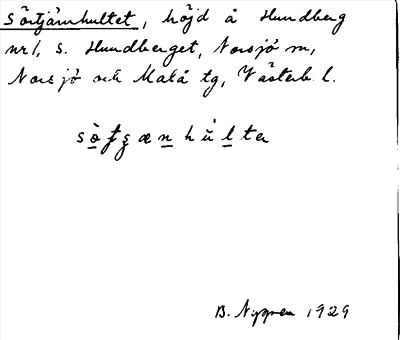 Sörtjärnhultet, höjd å Hundberg
nr1, s. Hundberget, Norsjö sn,
Norsjö och Malå tg, Västerb. l.
B. Nygren 1929